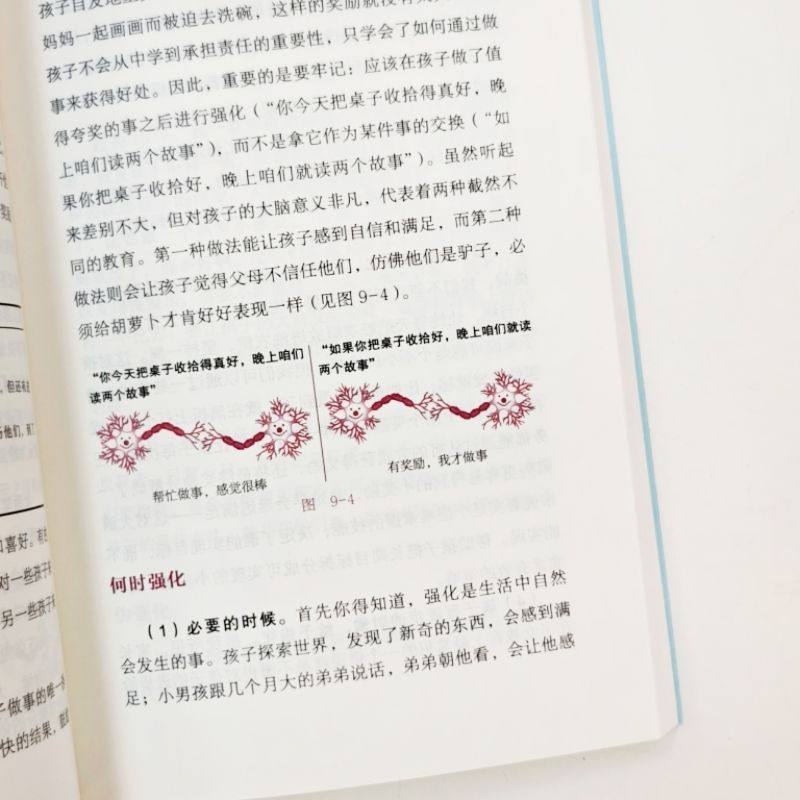 妈妈一起画画而被迫去洗碗，这样的奖励就没有
孩子不会从中学到承担责任的重要性，只学会了如何通过做
事来获得好处。因此，重要的是要牢记：应该在孩子做了值
得夸奖的事之后进行强化（“你今天把桌子收拾得真好，晚
上咱们读两个故事”），而不是拿它作为某件事的交换（“如
果你把桌子收拾好，晚上咱们就读两个故事”）。虽然听起
来差别不大，但对孩子的大脑意义非凡，代表着两种截然不
同的教育。第一种做法能让孩子感到自信和满足，而第二种
做法则会让孩子觉得父母不信任他们，仿佛他们是驴子，必
须给胡萝卜才肯好好表现一样（见图9-4）。
“你今天把桌子收拾得真好，晚上咱们
读两个故事”
帮忙做事，感觉很棒
“如果你把桌子收拾好，晚上咱们就读
两个故事”
有奖励，我才做事
图 9-4
何时强化
（1）必要的时候。首先你得知道，强化是生活中自然
会发生的事。孩子探索世界，发现了新奇的东西，会感到满
足；小男孩跟几个月大的弟弟说话，弟弟朝他看，会让他感
但还有
和喜好。有
对一些孩子
另一些孩子
子做事的唯一
快的结果，